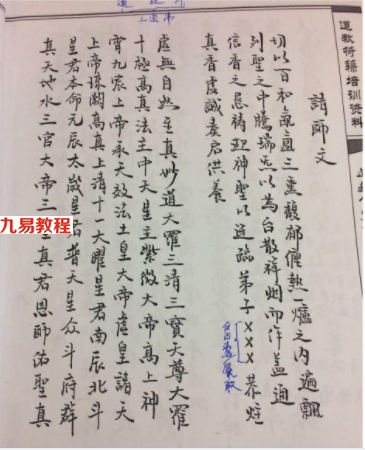 道教符箓培训资料
請師文
切以百和氤氲三熏馥郁傽熱一爐之内遍飄
列聖之中騰瑞炁以為台散祥烟而作盖通
信香之忌祷迎神聖以遥臨弟子×××恭炷
真香虔誠奏启供養
虚無自然至真妙道大羅三清三寶天尊大羅
十極高真法主中天星主紫微大帝高上神
霄九宸上帝承天效法土皇大帝虚皇諸大
上帝琼闕高真上清十一大曜星君南辰北斗
星君本命元辰太歲星君普天星众斗府群
真天地水三官大帝三
真君恩師佑聖真
九易教程